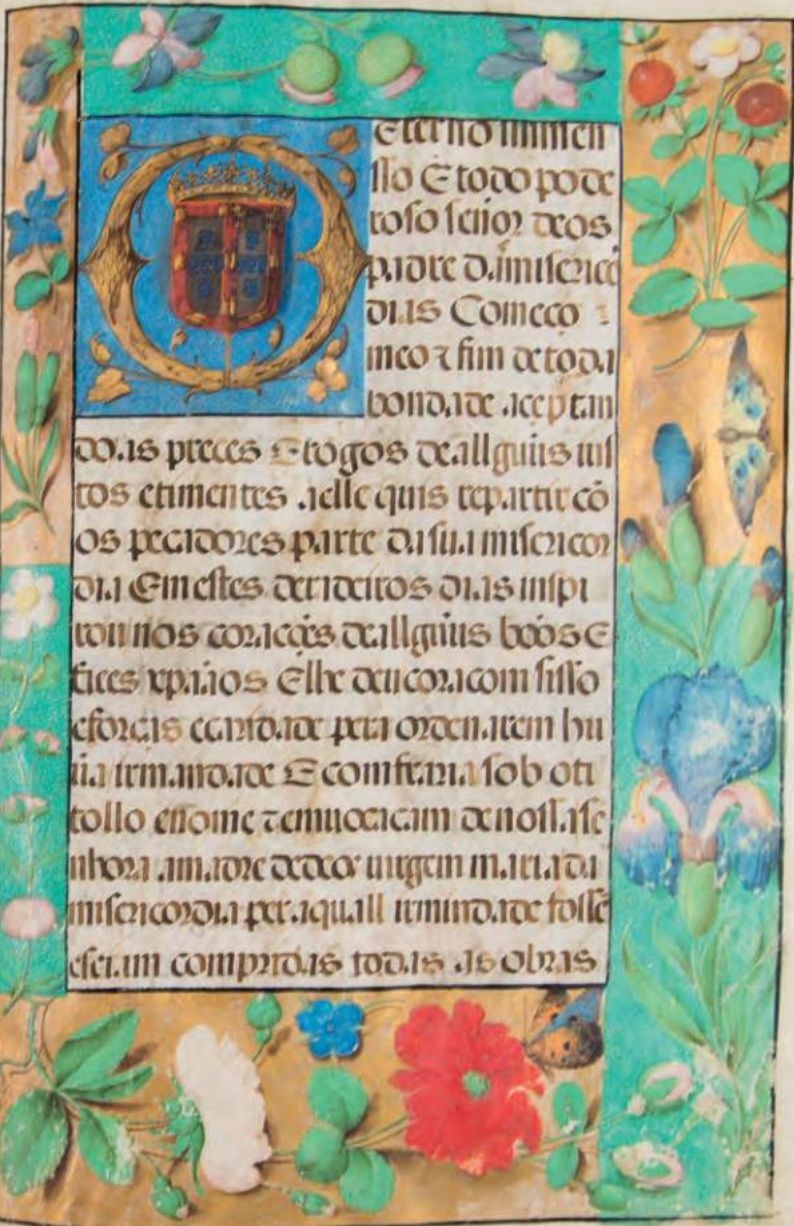 O Eterno immen
sso E todo pode
roso senor deos
padre d.mīsericor
dias Comeco
meo ⁊ fim de toda
bondade aceptan
do as preces E rogos de allguūs ius
tos etimentes aelle quis repartir cō
os pecadores parte da sua misericor
dia Em estes derradeiros dias inspi
rou nos coraçoēs dallguūs boōs E
fiees xp̄aãos Elhe deu coracom sisso
eforças ecaridade pera ordenarem hu
ũa irmandade E comfraria sob oti
tollo enome ⁊ emuocacam de nossa se
nhora amadre dedeos uirgem maria da
misericordia per aquall irmindade fosse
eseiam compridas todas as obras